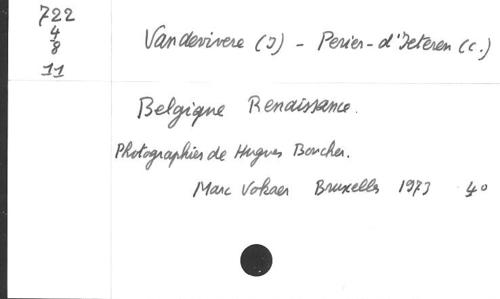 722
4
8
11
Vandevivere (I) - Perier-d'Ieteren (C.)
Belgique Renaissance.
Photographies de Hugues Boucher.
Marc Vokaer Bruxelles 1973 40